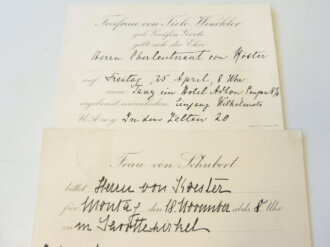 Freifrau von Tiele Winckler
geb. Gräfin
gibt sich die Ehre
Herrn Oberleutnant von Koster
auf Freitag, 25 April, 8 Uhr
zum Tanz im Hotel Adlon
ergebenst einzuladen. Eingang Wilhelmstr
U.A.w.g. In den Zelten 20
Frau von Schubert
bittet Herrn von Koester
für Montag den 18. November abds. 8 Uhr
zu